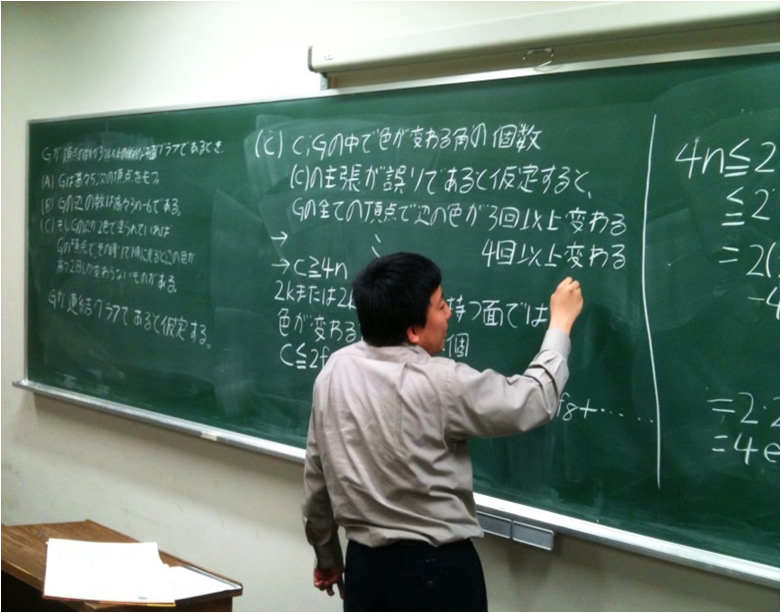 Gが頂点 平面グラフであるとき.
(A) Gは高々5次の頂点をもつ
(B) Gの辺の数は高々3n-6である。
(C) もしGの辺が2色で塗られていれば
Gの頂点で、その周りで順に見るとこの色が
高々2回しか変わらないものがある.
Gが連結グラフであると仮定する。
(C) C:Gの中で色が変わる角の個数
(C)の主張が誤りであると仮定すると、
Gの全ての頂点で辺の色が3回以上変わる
→ 4回以上変わる
→C≧4n
2kまたは2k 持つ面では
色が変わる 個
C≦2f
f8+······
4n≦2
≦2
=2(
-4
=2·2
=4e